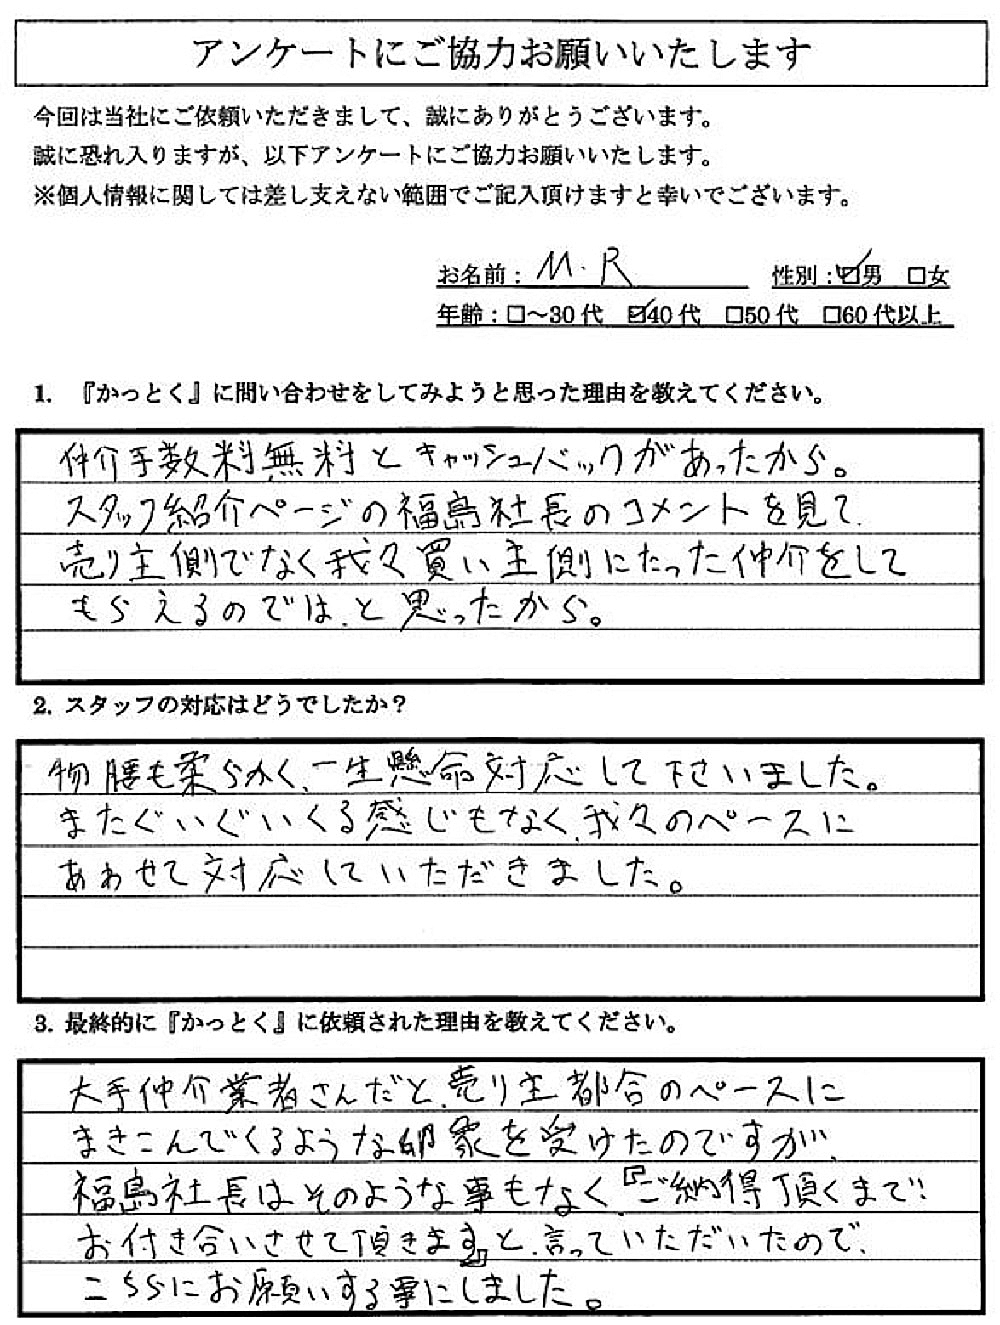 アンケートにご協力お願いいたします
今回は当社にご依頼いただきまして、誠にありがとうございます。
誠に恐れ入りますが、以下アンケートにご協力お願いいたします。
※個人情報に関しては差し支えない範囲でご記入頂けますと幸いでございます。
お名前：M.R 性別：☑男 □女
年齢：□～30代 ☑40代 □50代 □60代以上
1. 『かっとく』に問い合わせをしてみようと思った理由を教えてください。
仲介手数料無料とキャッシュバックがあったから。
スタッフ紹介ページの福島社長のコメントを見て、
売り主側でなく我々買い主側にたった仲介をして
もらえるのでは、と思ったから。
2. スタッフの対応はどうでしたか？
物腰も柔らかく、一生懸命対応して下さいました。
またぐいぐいくる感じもなく、我々のペースに
あわせて対応していただきました。
3. 最終的に『かっとく』に依頼された理由を教えてください。
大手仲介業者さんだと、売り主都合のペースに
まきこんでくるような印象を受けたのですが、
福島社長はそのような事もなく『ご納得頂くまで
お付き合いさせて頂きます』と、言っていただいたので、
こちらにお願いする事にしました。